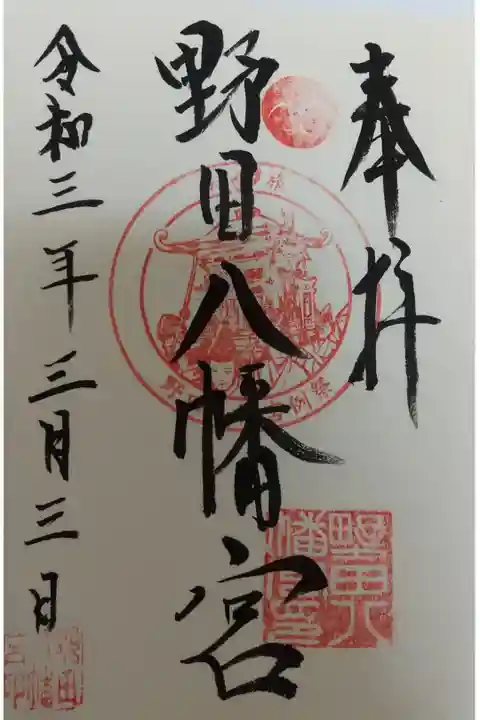 奉拝
野田八幡宮
令和三年三月三日